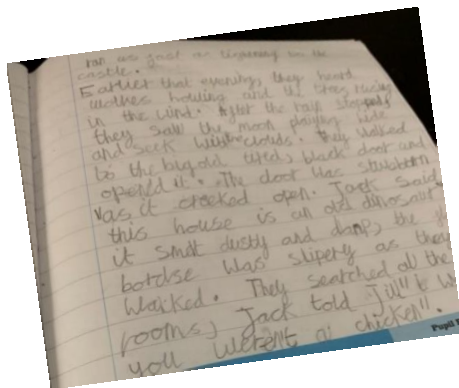 ran as fast as lightening to the
castle.
Earlier that evening, they heard
wolves howling and the trees
in the wind. After the rain stopped
they saw the moon playing hide
and seek with the clouds. They walked
to the big old, tired, black door and
opened it. The door was stubborn
as it creeked open. Jack said
this house is an old dinosaur
it smelt dusty and damp, the
was slipery as they
walked. They searched all the
rooms, Jack told Jill
you weren't a chicken".
Pupil